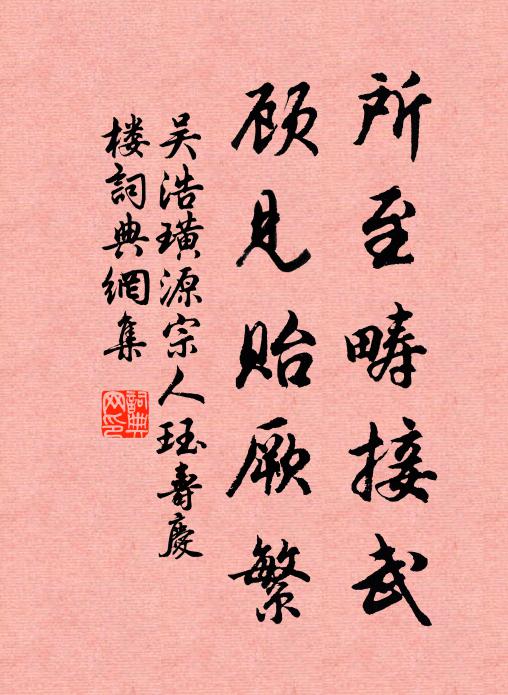 所至畴接武
顾见贻厥繁
吴浩璜源宗人珏寿庆
楼詞典網集
詞典网印